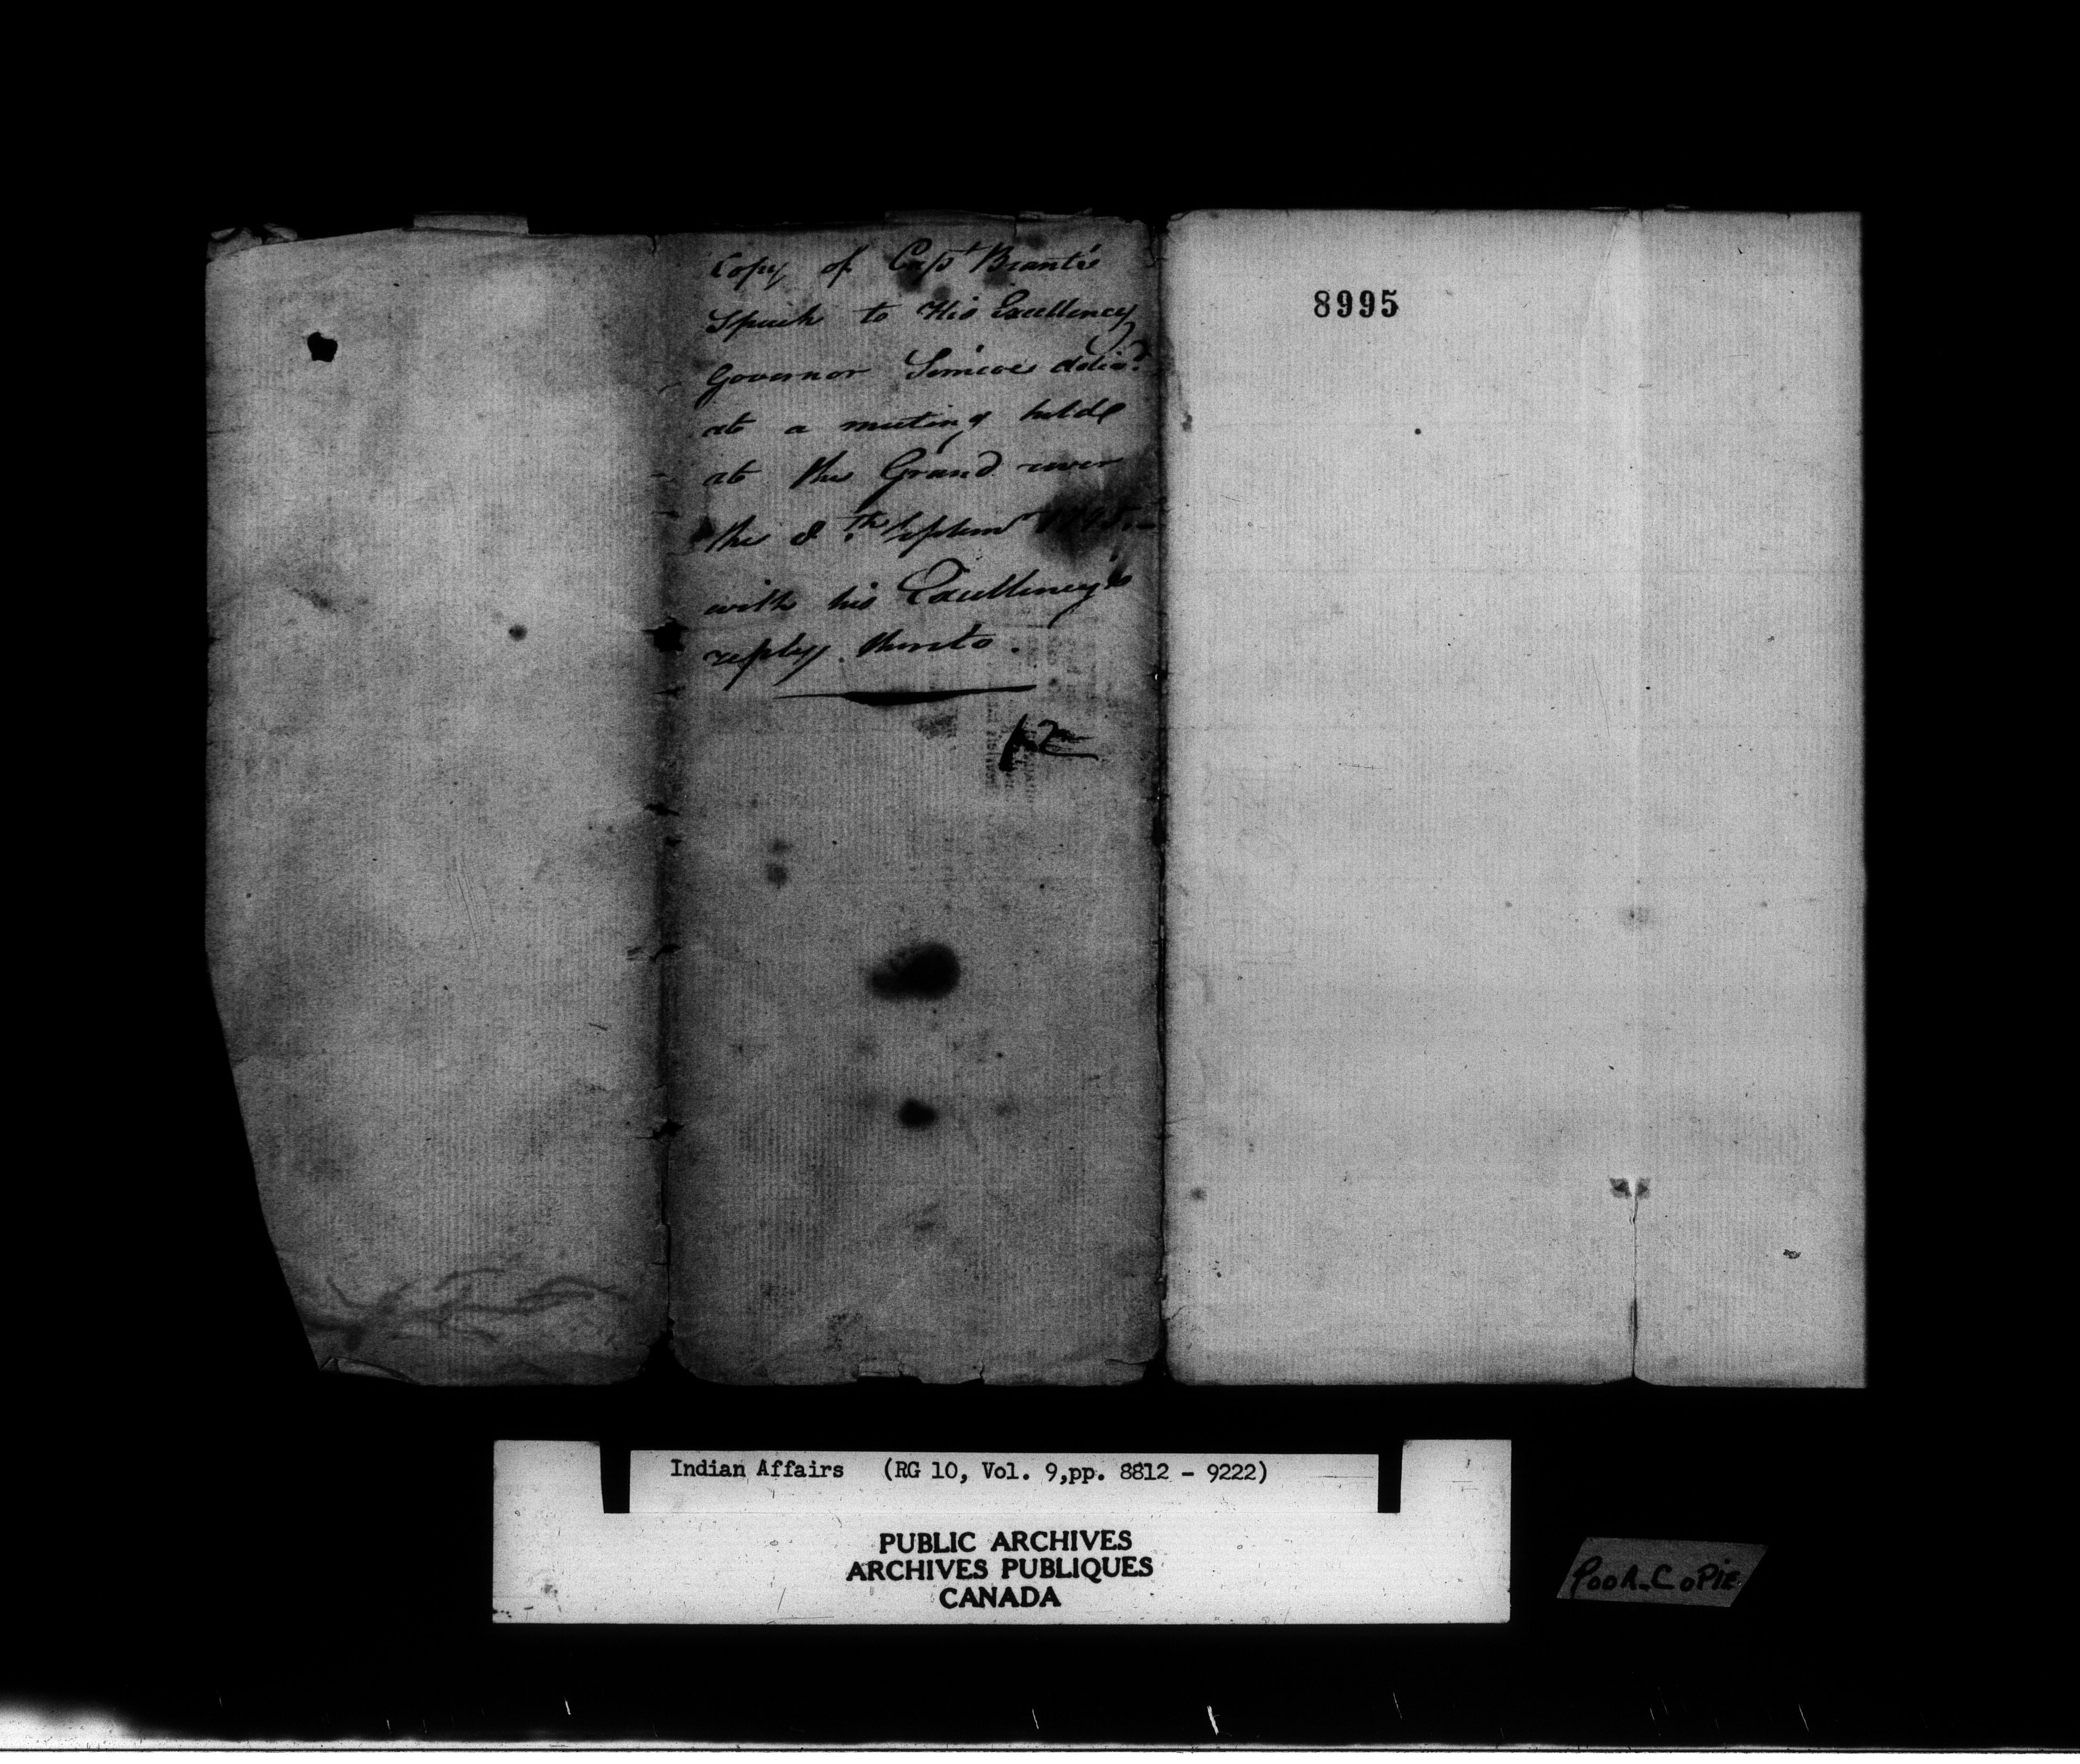 Copy of Capt Brant's
Speech to His Excellency
Governor Simcoe deliv.d
at a meeting held
at the Grand river
the 8.th Septemr 1795.—
with his Excellency's
reply thereto.
8995
Indian Affairs (RG 10, Vol. 9,pp. 8812 - 9222)
PUBLIC ARCHIVES
ARCHIVES PUBLIQUES
CANADA
POOR_COPIE